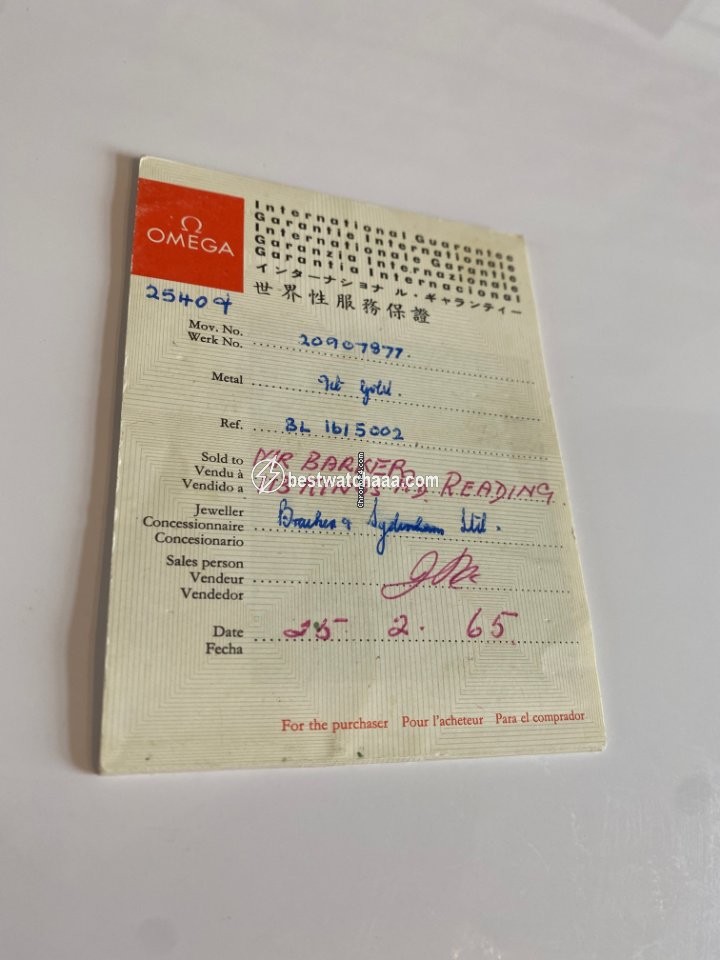 Ω
OMEGA
International Guarantee
Garantie Internationale
Internationale Garantie
Garanzia Internazionale
Garantia Internacional
インターナショナル・ギャランティー
世界性服務保證
25409
Mov. No.
Werk No. 20907877.
Metal 9ct gold.
Ref. BL 1615002
Sold to
Vendu à MR BARKER
Vendido a READING
bestwatchaaa.com
Chrono24.com
Jeweller
Concessionnaire Sydenham Ltd.
Concesionario
Sales person
Vendeur
Vendedor
Date 25 2. 65
Fecha
For the purchaser Pour l'acheteur Para el comprador